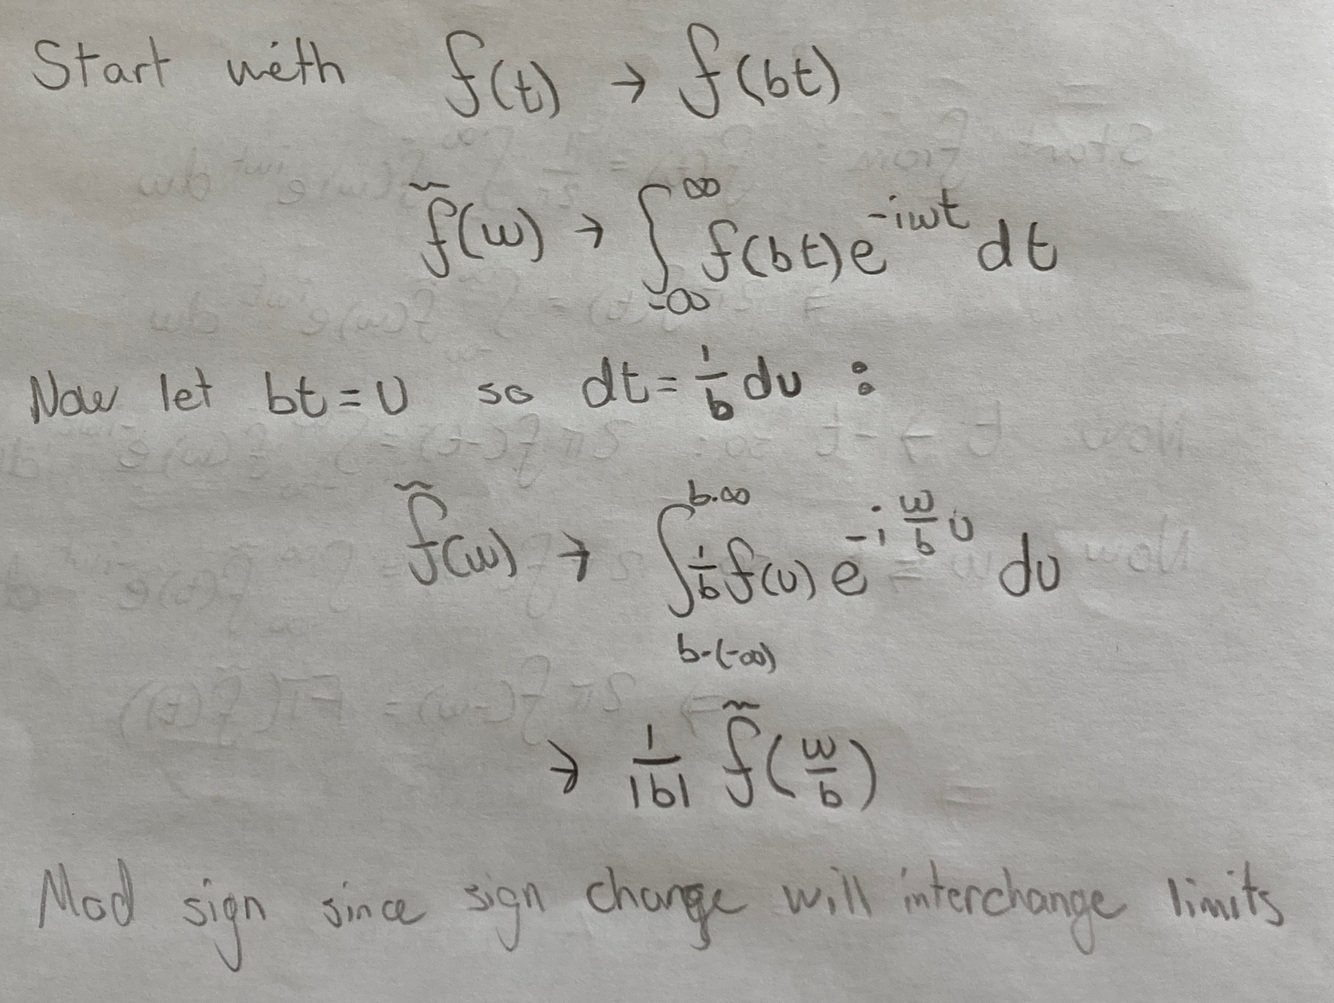 Start with f(t) → f(bt)
f̃(ω) → ∫_{-∞}^{∞} f(bt) e^{-iωt} dt
Now let bt = u so dt = 1/b du :
f̃(ω) → ∫_{b·(-∞)}^{b·∞} 1/b f(u) e^{-i ω/b u} du
→ 1/|b| f̃(ω/b)
Mod sign since sign change will interchange limits